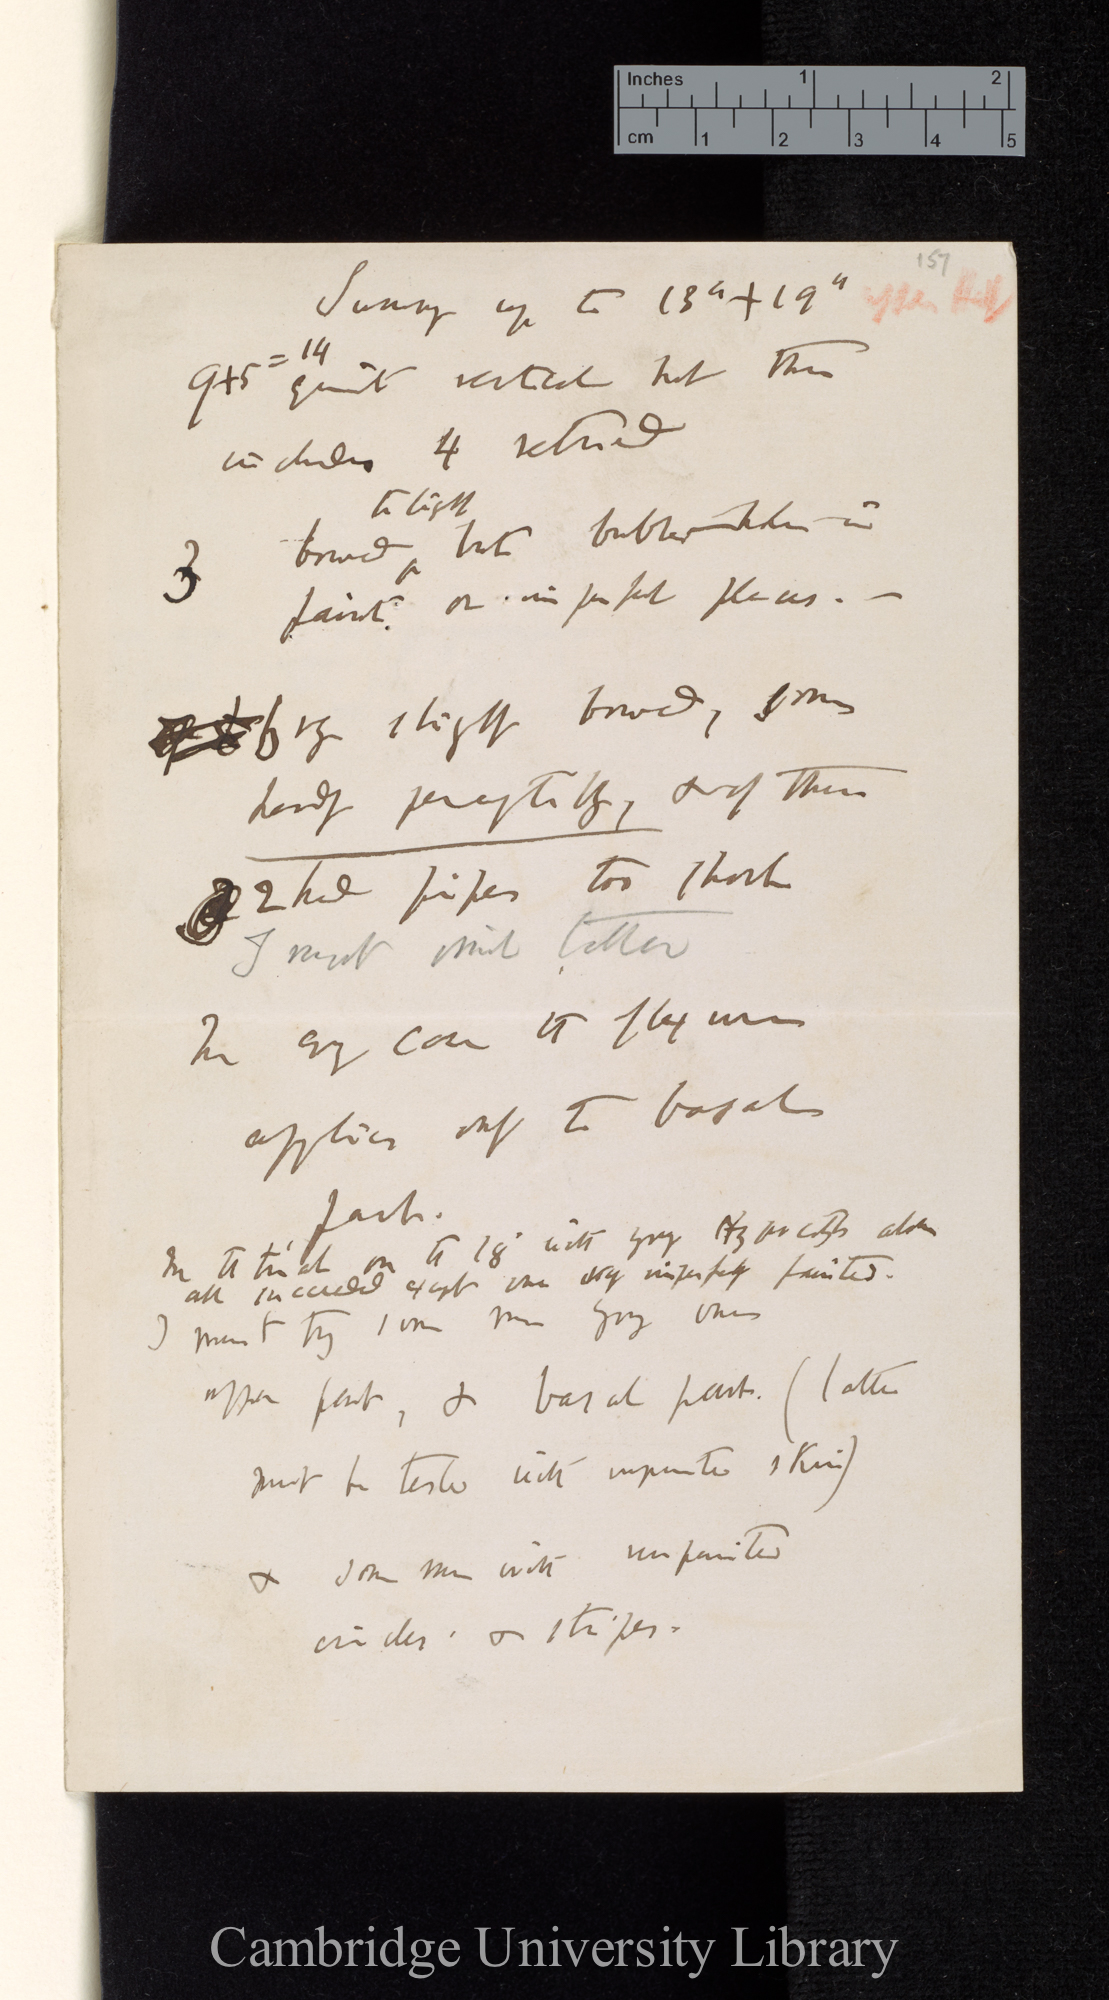 Inches 1 2
cm 1 2 3 4 5
157
Summing up to 18th + 19th upper half
9+5 = 14 quite vertical but this
includes 4 retried
to light
3 bowed, but bubbles in
paint or imperfect places. —
6 very slightly bowed, some
hardly perceptibly, & of these
2 had pipes too short
I must omit latter
In every case the flexure
applies only to basal
part.
In the trial on the 18th with young Hypocotyls alone
all succeeded except one very imperfectly painted.
I must try some more young ones
upper part, & basal part. (latter
must be tested with unpainted skin)
& some more with unpainted
circles & stripes.
Cambridge University Library